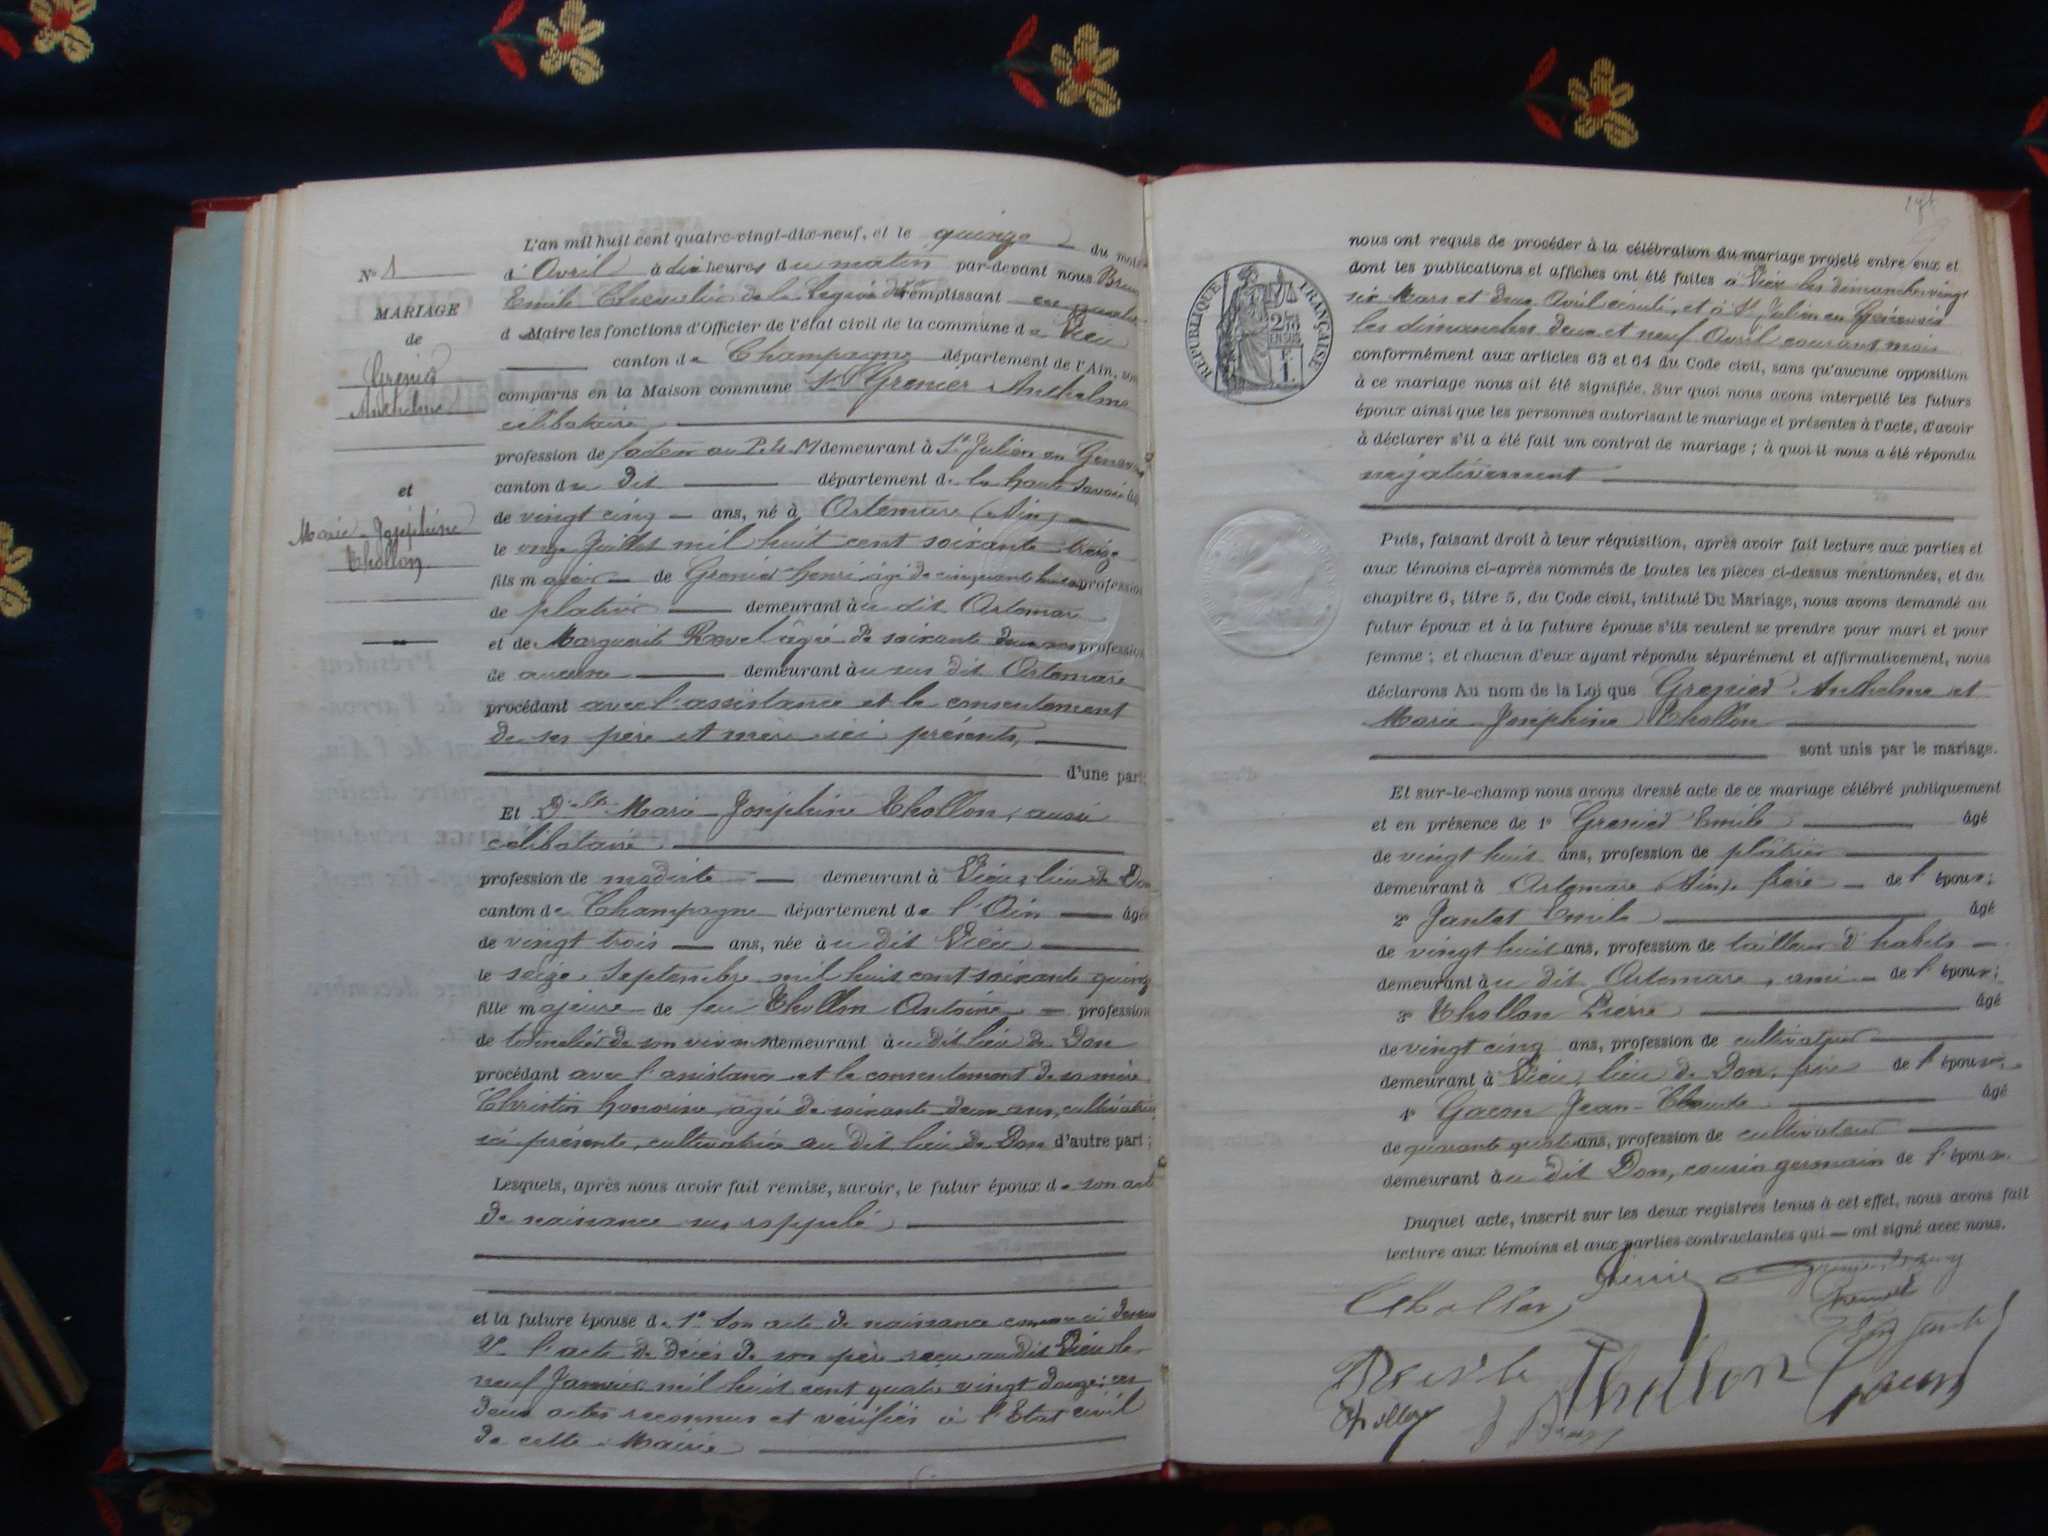 N° 1
MARIAGE
de
Grenier
Anthelme
et
Marie-Joséphine
Thollon
L'an mil huit cent quatre-vingt-dix-neuf, et le quinze du mois
d'Avril à dix heures du matin par-devant nous
Emile Chevalier de la Légion remplissant en qualité
de Maire les fonctions d'Officier de l'état civil de la commune de Vieu
canton de Champagne département de l'Ain, sont
comparus en la Maison commune Sr Grenier Anthelme
célibataire
profession de facteur au P.L.M demeurant à St Julien en Genevois
canton du dit département de la haute Savoie âgé
de vingt cinq ans, né à Artemare (Ain)
le onze Juillet mil huit cent soixante treize
fils majeur de Grenier henri âgé de cinquante huit ans profession
de plâtrier demeurant au dit Artemare
et de Marguerite Revel âgée de soixante deux ans profession
de aucune demeurant au sus dit Artemare
procédant avec l'assistance et le consentement
de ses père et mère ici présents,
d'une part
Et Dlle Marie Joséphine Thollon, aussi
célibataire
profession de modiste demeurant à Vieu, lieu de Don
canton de Champagne département de l'Ain âgé
de vingt trois ans, née au dit Vieu
le seize Septembre mil huit cent soixante quinze
fille majeure de feu Thollon Antoine profession
de tonnelier de son vivant demeurant au dit lieu de Don
procédant avec l'assistance et le consentement de sa mère
Christin honorine, agée de soixante deux ans, cultivatrice
ici présente, cultivatrice au dit lieu de Don d'autre part;
Lesquels, après nous avoir fait remise, savoir, le futur époux de son acte
de naissance sus rappelé
et la future épouse de 1° Son acte de naissance comme ci dessus
2° l'acte de décès de son père reçu au dit Vieu le
neuf Janvier mil huit cent quatre vingt douze; ces
deux actes reconnus et vérifiés à l'Etat civil
de cette Mairie
RÉPUBLIQUE FRANÇAISE
nous ont requis de procéder à la célébration du mariage projeté entre eux et
dont les publications et affiches ont été faites à Vieu les dimanches vingt
six Mars et deux Avril écoulé, et à St Julien en Genevois
les dimanches deux et neuf Avril courant mois
conformément aux articles 63 et 64 du Code civil, sans qu'aucune opposition
à ce mariage nous ait été signifiée. Sur quoi nous avons interpellé les futurs
époux ainsi que les personnes autorisant le mariage et présentes à l'acte, d'avoir
à déclarer s'il a été fait un contrat de mariage; à quoi il nous a été répondu
négativement
Puis, faisant droit à leur réquisition, après avoir fait lecture aux parties et
aux témoins ci-après nommés de toutes les pièces ci-dessus mentionnées, et du
chapitre 6, titre 5, du Code civil, intitulé Du Mariage, nous avons demandé au
futur époux et à la future épouse s'ils veulent se prendre pour mari et pour
femme; et chacun d'eux ayant répondu séparément et affirmativement, nous
déclarons Au nom de la Loi que Grenier Anthelme et
Marie Joséphine Thollon
sont unis par le mariage.
Et sur-le-champ nous avons dressé acte de ce mariage célébré publiquement
et en présence de 1° Grenier Emile âgé
de vingt huit ans, profession de plâtrier
demeurant à Artemare (Ain), frère de l'époux;
2° Jantet Emile âgé
de vingt huit ans, profession de tailleur d'habits
demeurant au dit Artemare, ami de l'époux;
3° Thollon Pierre âgé
de vingt cinq ans, profession de cultivateur
demeurant à Vieu, lieu de Don, frère de l'épouse
4° Gacon Jean-Claude âgé
de quarante quatre ans, profession de cultivateur
demeurant au dit Don, cousin germain de l'épouse.
Duquel acte, inscrit sur les deux registres tenus à cet effet, nous avons fait
lecture aux témoins et aux parties contractantes qui ont signé avec nous.
Thollon
Thollon Gacon
Thollon